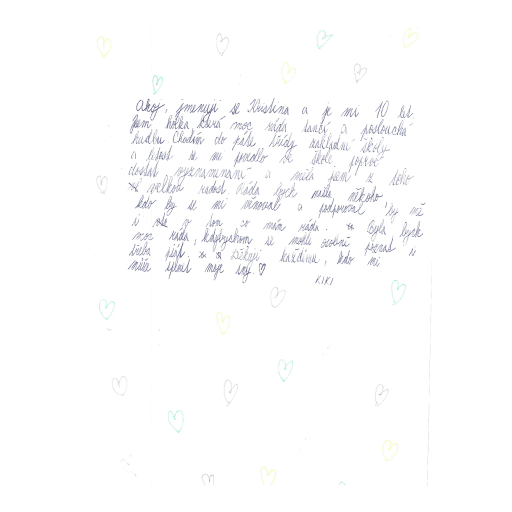 Ahoj, jmenuji se Kristina a je mi 10 let.
Jsem holka která moc ráda tančí a poslouchá
hudbu. Chodím do páté třídy základní školy
a letost se mi povedlo ve škole poprvé
dostat vyznamenání a měla jsem z toho
velkou radost. Ráda bych našla někoho
kdo by se mi věnoval a podporoval by mě
i v tom co mám ráda. Byla bych
moc ráda, kdybychom se mohli osobně poznat
třeba psát. Děkuji každému, kdo mi
může splnit moje sny. ♡
KIKI